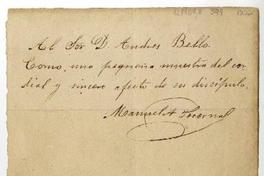 Al Sor D. Andres Bello
Como una pequeña muestra del cor
dial y sincero afecto de su discípulo.
Manuel A Tocornal